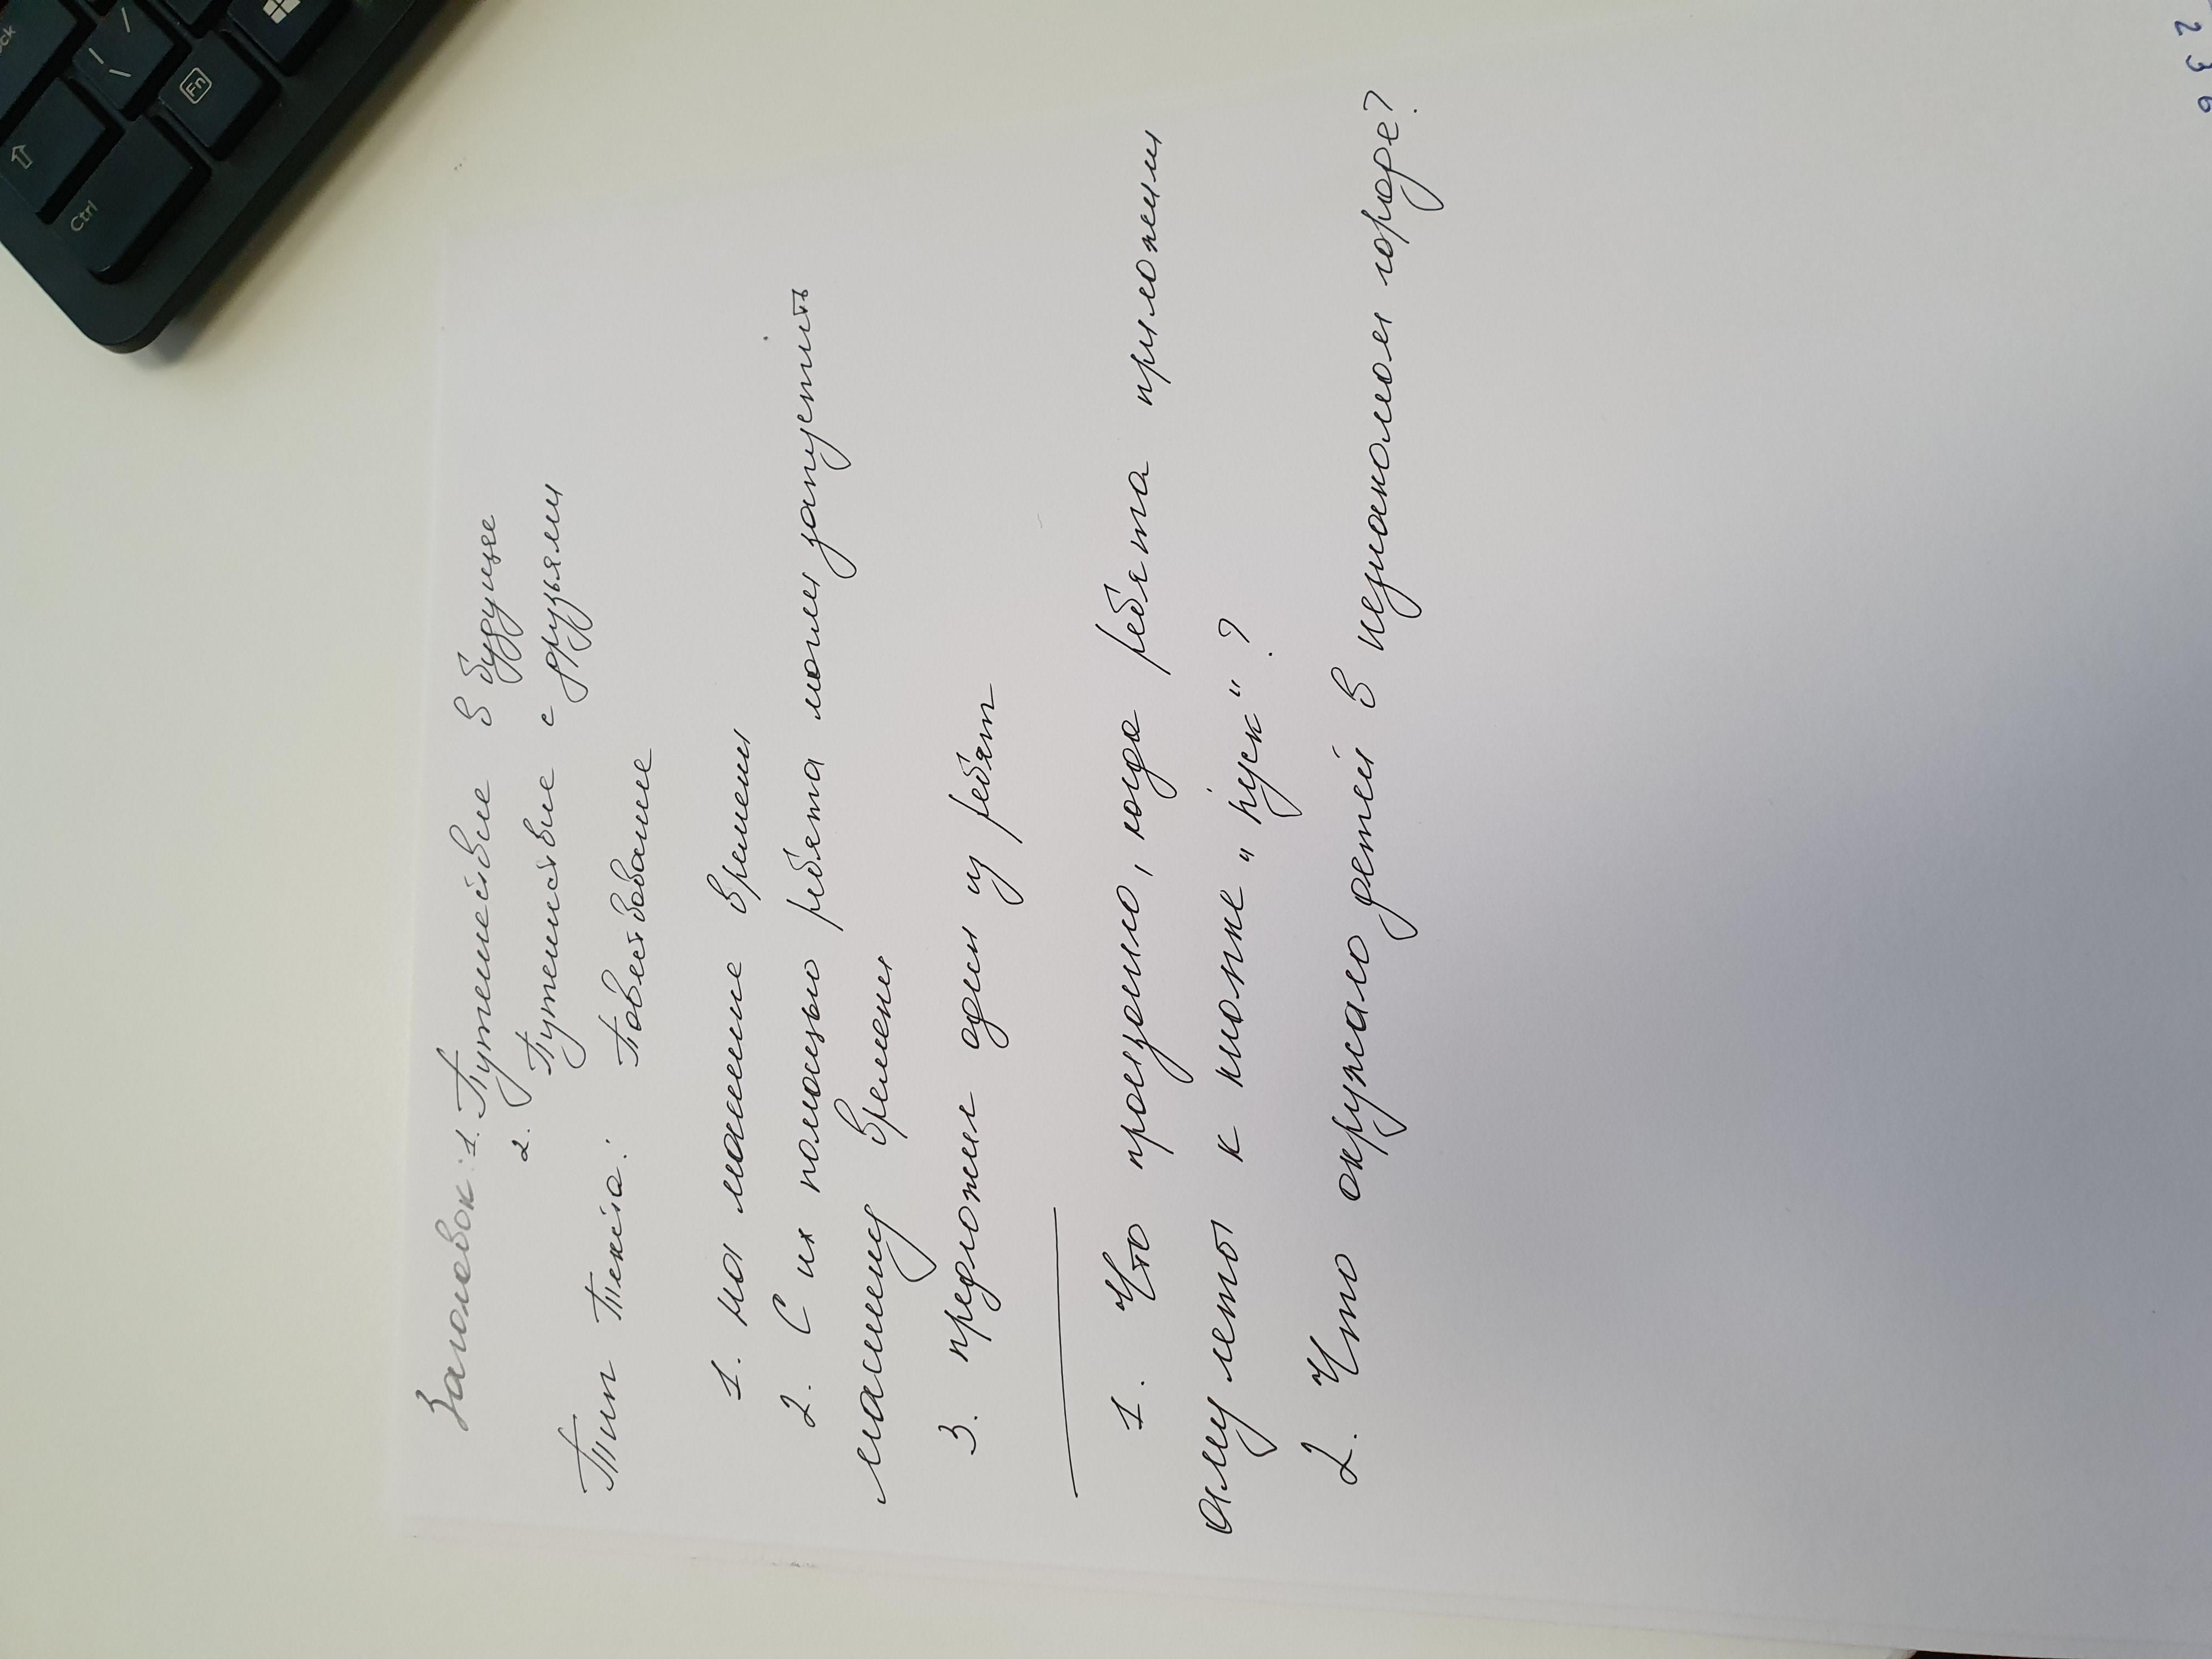 Заголовок: 1. Путешествие в будущее
2. Путешествие с друзьями
Тип текста: Повествование
1. на машине времени
2. С их помощью ребята могли запустить
машину времени
3. предложил один из ребят
1. Что произошло, когда ребята приложили
амулеты к кнопке "пуск"?
2. Что окружало детей в незнакомом городе?
Ctrl
Fn